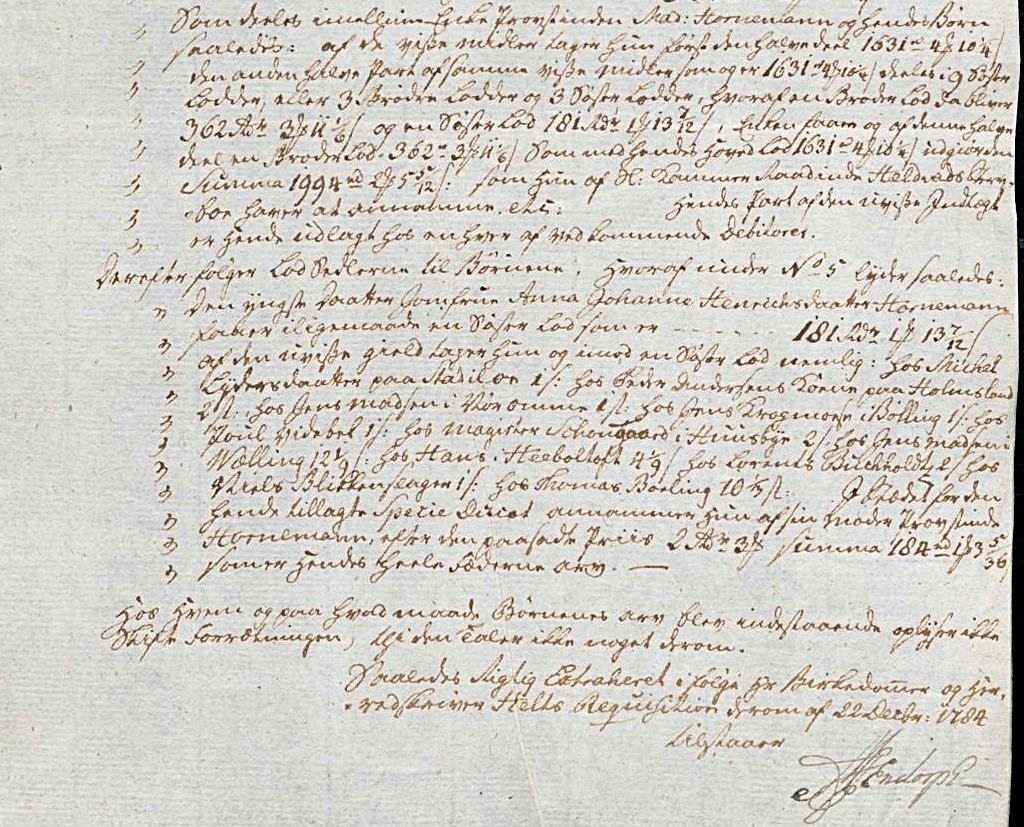 Som deeles imellem Enke Provstinden Mad: Hornemann og hendes Børn
saaledes: af de visse midler tager hun først den halve deel 1631 rd 4 ₰ 10 1/4 /
den anden halve Part af samme visse midler som og er 1631 rd 4 ₰ 10 1/4 / deeles i 9 Søster
Lodder, eller 3 Brødre Lodder og 3 Søster Lodder, hvoraf en Broder Lod da bliver
362 Rdr 3 ₰ 11 1/6 / og en Søster Lod 181 Rdr 1 ₰ 13 7/12 /, Enken faaer og af denne halve
deel en Broder Lod 362 rd 3 ₰ 11 1/6 / Som med hendes hoved Lod 1631 rd 4 ₰ 10 1/4 / udgiør den
Summa 1994 rd 2 ₰ 5 5/12 /: som hun af Sl: Kammer Raadinde Heldvads Sterv-
boe haver at annamme. etc: hendes Part af den uvisse Indtægt
er hende udlagt hos en hver af vedkommende Debitorer.
Derefter følger Lod Sedlerne til Børnene, hvoraf under No 5 lyder saaledes:
Den yngste Daatter Jomfrue Anna Johanne Henrichsdaatter Hornemann
faaer iligemaade en Søster Lod som er - - - - - 181 Rdr 1 ₰ 13 7/12 /
af den uvisse gield tager hun og imod en Søster Lod nemlig: hos Michel
Eydersdaatter paa Stadil øe 1 /: hos Peder Andersens Kone paa Holmsland
2 /: hos Jens Madsen i Nør omme 1 /: hos Jens Krogmose i Bølling 1 /: hos
Poul Videbek 1 /: hos Magister Schougaard i Huusbye 2 /: hos Jens Madsen i
Wælling 12 1/9 /: hos Hans i Heeboltoft 4 1/9 / hos Lorents Buchholdt 2 / hos
Niels Blikkenslager 1 /: hos Thomas Borling 10 /: I stædet for den
hende tillagte Specie Ducat annammer hun af sin moder Provstinde
Hornemann, efter den paasatte Priis 2 Rdr 3 ₰ summa 184 rd 1 ₰ 3 5/36 /
som er hendes heele Fæderne arv. —
Hos hvem og paa hvad maade Børnenes arv blev indestaaende oplyser ikke
Skifte Forretningen, thi den taler ikke noget derom.
Saaledes Rigtig Extraheret i følge Hr Birkedommer og Her-
redskriver Helts Requisition derom af 22 Decbr: 1784
tilstaaer